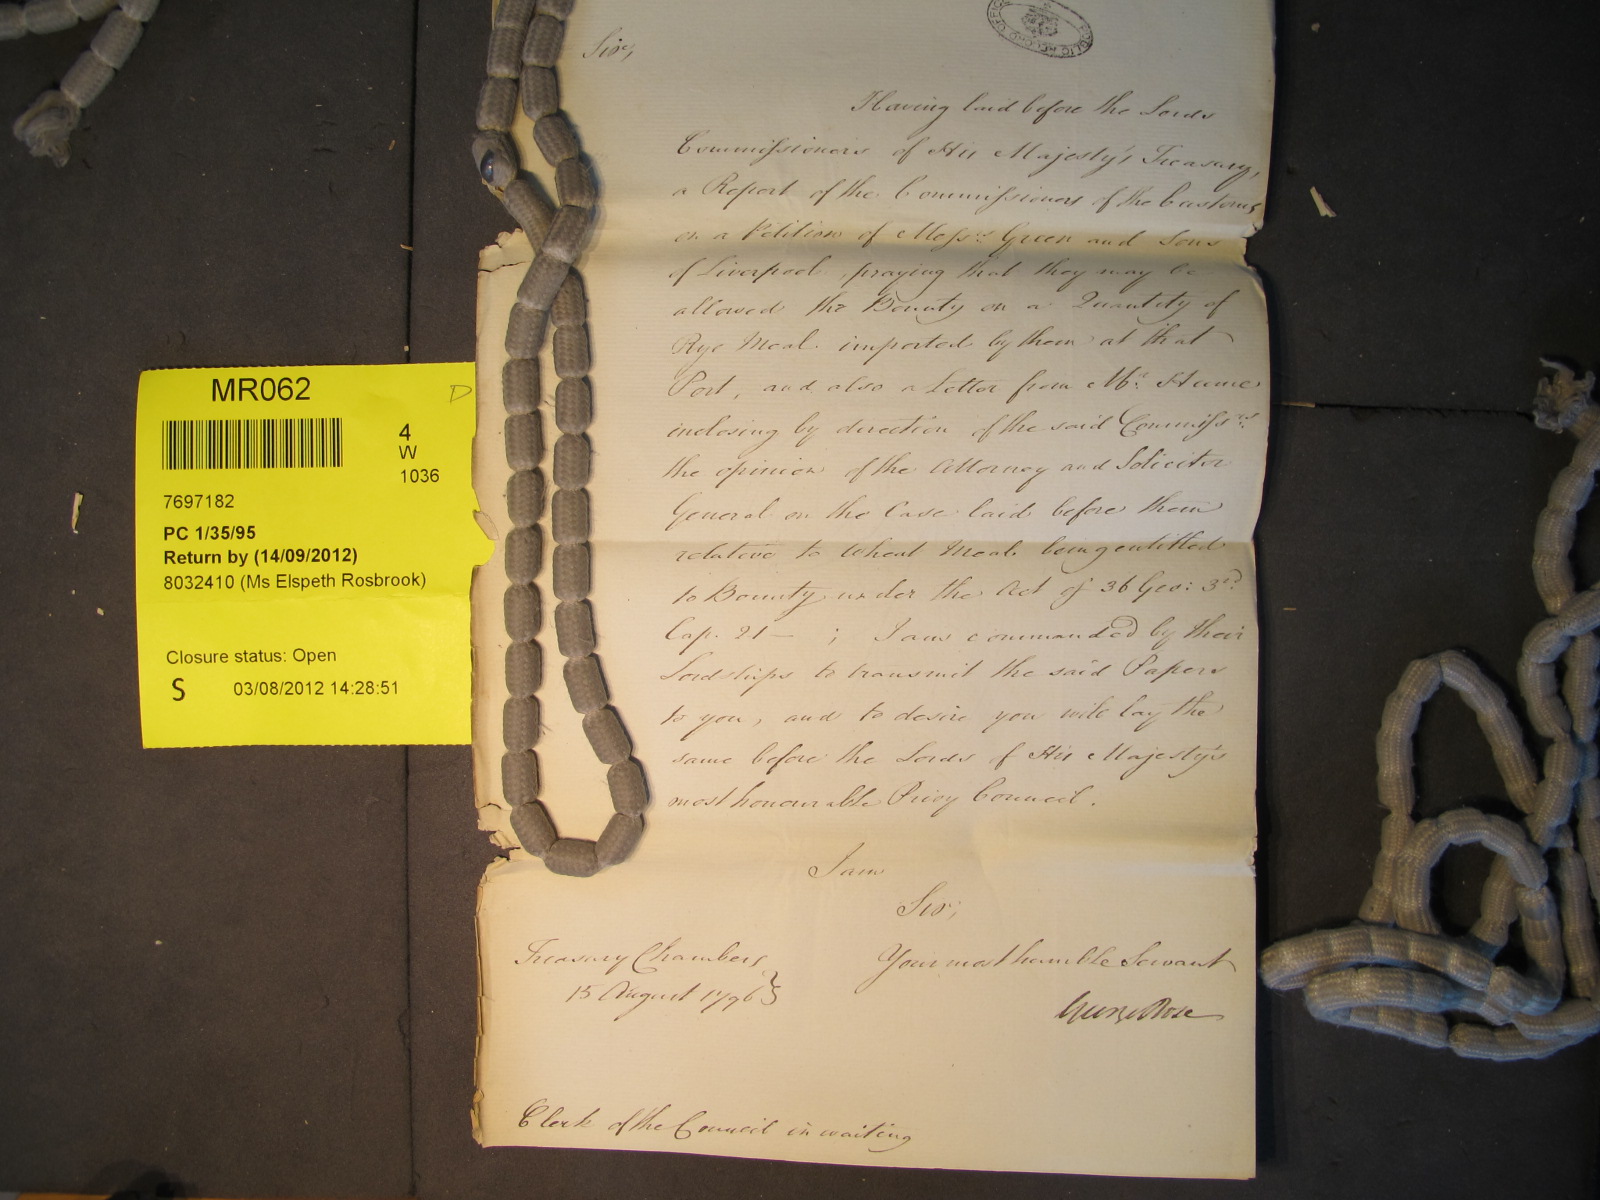 Sir,
PUBLIC RECORD OFFICE
Having laid before the Lords
Commissioners of His Majesty's Treasury,
a Report of the Commissioners of the Customs
on a Petition of Mess.rs Green and Sons
of Liverpool, praying that they may be
allowed the Bounty on a Quantity of
Rye Meal imported by them at that
Port, and also a Letter from Mr. Hume
inclosing by direction of the said Commissrs.
the opinion of the Attorney and Solicitor
General on the Case laid before them
relative to Wheat Meal being entitled
to Bounty under the Act of 36 Geo: 3rd
Cap. 21 — ; I am commanded by their
Lordships to transmit the said Papers
to you, and to desire you will lay the
same before the Lords of His Majesty's
most honourable Privy Council.
I am
Sir,
Your most humble Servant
George Rose
Treasury Chambers,
15 August 1796
Clerk of the Council in waiting
MR062
D
4
W
1036
7697182
PC 1/35/95
Return by (14/09/2012)
8032410 (Ms Elspeth Rosbrook)
Closure status: Open
S 03/08/2012 14:28:51